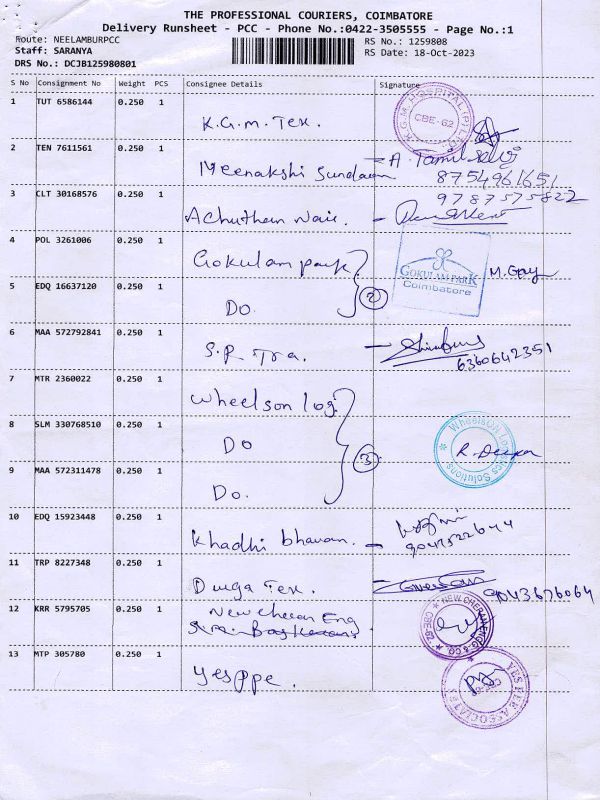 THE PROFESSIONAL COURIERS, COIMBATORE
Delivery Runsheet - PCC - Phone No.:0422-3505555 - Page No.:1
Route: NEELAMBURPCC
Staff: SARANYA
DRS No.: DCJB125980801
RS No.: 1259808
RS Date: 18-Oct-2023
S No Consignment No Weight PCS Consignee Details Signature
1 TUT 6586144 0.250 1 K.G.M. Tex.
K.G.M. HOSPITAL (P) LTD.
CBE-62
2 TEN 7611561 0.250 1 Meenakshi Sundaram - A. Tamil Selvi
8754961651
3 CLT 30168576 0.250 1 Achuthan Nair. -
9787575822
4 POL 3261006 0.250 1 Gokulam park
GOKULAM PARK
Coimbatore
5 EDQ 16637120 0.250 1 Do. 2
6 MAA 572792841 0.250 1 S.P. Tra. -
6360642351
7 MTR 2360022 0.250 1 Wheelson log.
8 SLM 330768510 0.250 1 Do 3
WheelsOn Logistics Solutions
R. Deepa
9 MAA 572311478 0.250 1 Do.
10 EDQ 15923448 0.250 1 Khadhi bhavan. -
9047522644
11 TRP 8227348 0.250 1 Durga Tex.
9043676064
12 KRR 5795705 0.250 1 New Cheran Eng
NEW CHERAN ENGG & CO.
13 MTP 305780 0.250 1 Yesppe.
YES PEE ASSOCIATES